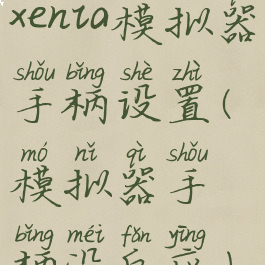 xenia模拟器
shǒu bǐng shè zhì
手柄设置(
mó nǐ qì shǒu
模拟器手
bǐng méi fǎn yīng
柄没反应)